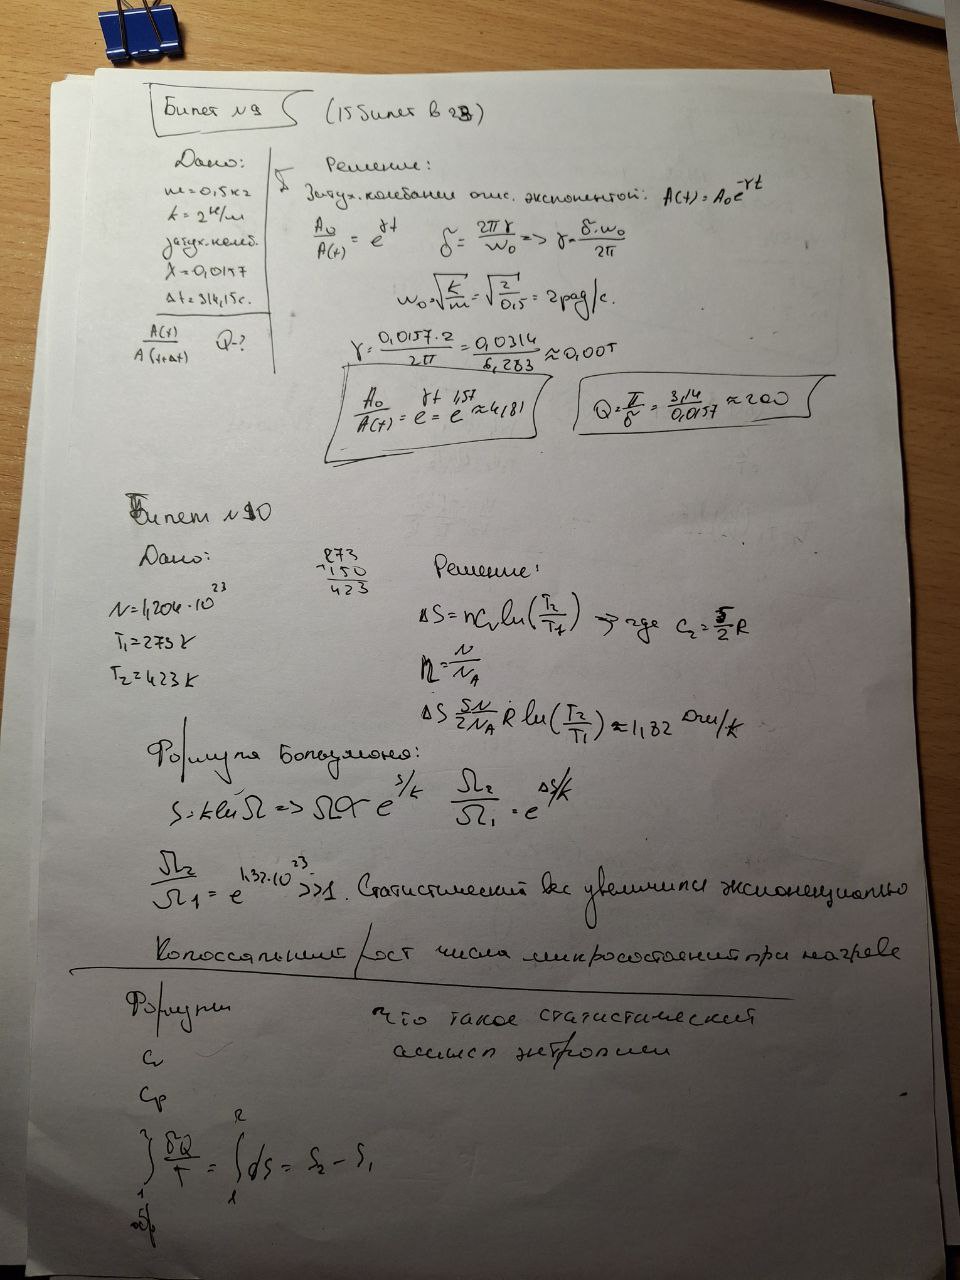 Билет N9 (15 билет в 23)
Дано:
m=0,5кг
k=2н/м
затух.колеб.
λ=0,0157
Δt=314,15с.
A(t)/A(t+Δt) Q-?
Решение:
Затух.колебания опис. экспонентой: A(t)=A₀e^-γt
A₀/A(t) = e^γt δ = 2πγ/ω₀ => γ = δ·ω₀/2π
ω₀=√k/m=√2/0,5=2рад/с.
γ = 0,0157·2/2π = 0,0314/6,283 ≈ 0,005
A₀/A(t) = e^γt = e^1,57 ≈ 4,81
Q = π/δ = 3,14/0,0157 ≈ 200
Билет N10
Дано:
N=1,204·10^23
T₁=273 K
T₂=423 K
273
+150
423
Решение:
ΔS=nCᵥln(T₂/T₁) → где C₂=5/2 R
n = N/N_A
ΔS 5N/2N_A R ln(T₂/T₁) ≈1,82 Дж/К
Формула Больцмана:
S=klnΩ => Ω∝ e^S/k Ω₂/Ω₁ = e^ΔS/k
Ω₂/Ω₁ = e^1,32·10^23 >>1. Статистический вес увеличился экспоненциально
Колоссальный рост числа микросостояний при нагреве
Формулы
Cv
Cp
∫₁² δQ/T = ∫₁² dS = S₂ - S₁
обр
Что такое статистический
смысл энтропии